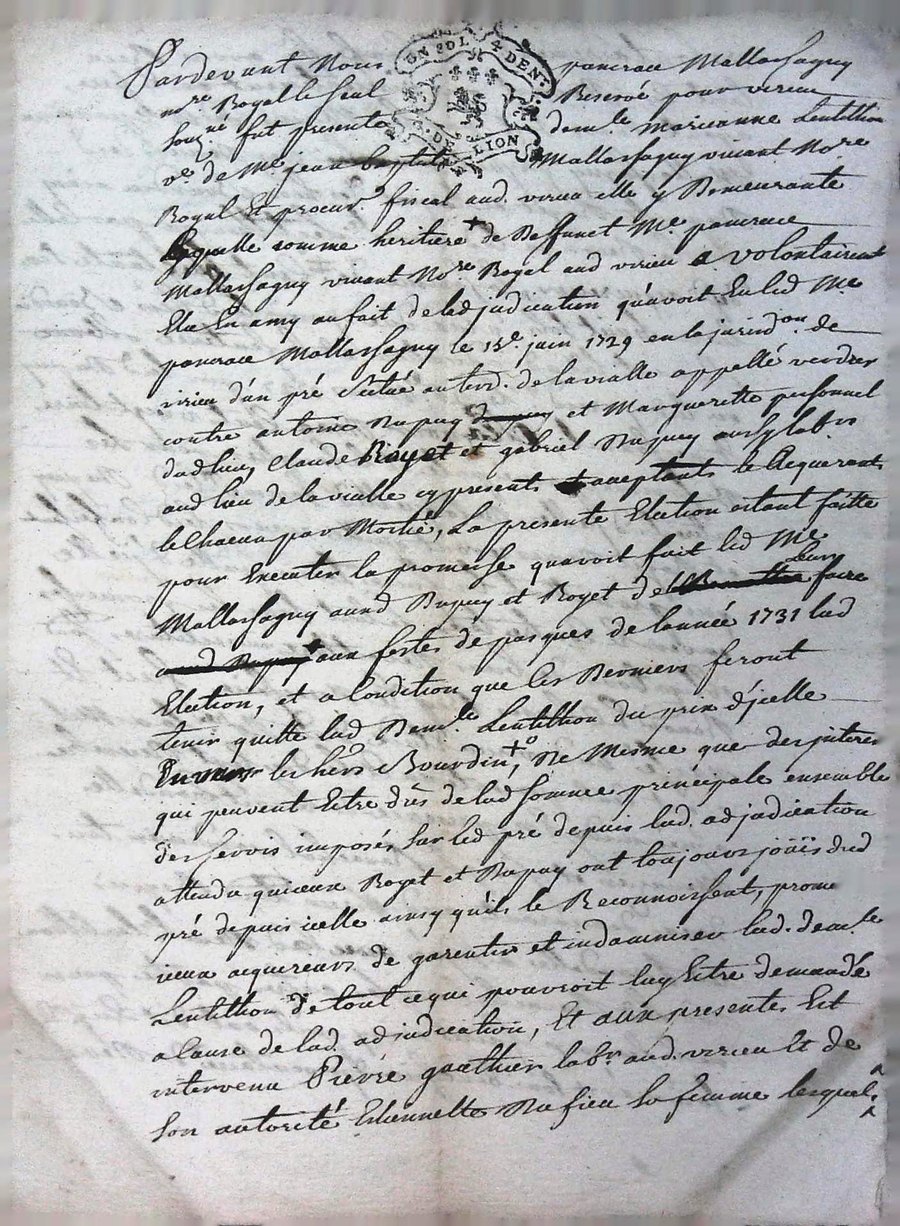 UN SOL 4 DEN.
G. DE LION
Pardevant Nous pancrace Mallassagny
no.re Royal le seul Reservé pour virieu
souz.né fut presente dem.le marianne Lentillon
v.e de M.e jean baptiste Mallassagny vivant No.re
Royal Et procur.r fiscal aud. virieu elle y Demeurante
laquelle comme heritiere + de Deffunct M.e pancrace
Mallassagny vivant No.re Royal aud virieu a volontairem.t
Elu En amy au fait de lad judication qu'avoit Eu led M.e
pancrace Mallassagny le 15.e juin 1729 en la jurisd.on de
virieu d'un pré scitué au terr.d. de la vialle appellé verdier
contre antoine Dupuy et Marguerette personnel
dud lieu, Claude Royet et gabriel Dupuy aussy lab.rs
aud lieu de la vialle cy presents acceptants Et Acquerants
le Chacun par Moitié, La presente Election estant faitte
pour Executer la promesse quavoit fait led M.e
Mallassagny aud Dupuy et Royet de leur faire
+ aux festes de pasques de lannée 1731 lad
Election, et a Condition que les Derniers feront
tenir quitte lad Dem.le Lentillon du prix d'jcelle
Envers les hérs Bourdin +°, De Mesme que des jnterets
qui peuvent Estre dûs de lad somme principale ensemble
des servis imposés sur led pré depuis lad. adjudication
attendu quieux Royet et Dupuy ont toujours joüis dud
pré depuis icelle ainsy quils le Reconnoissent, prome
jceux acquereurs de garentir et indamniser lad. dem.le
Lentillon de tout ce qui pouvroit luy Estre demandé
a Cause de lad. adjudication, Et aux presentes Est
intervenu Piérre gauthier lab.r aud. virieu Et de
son autorité Estiennette Dufieu sa femme lesquels